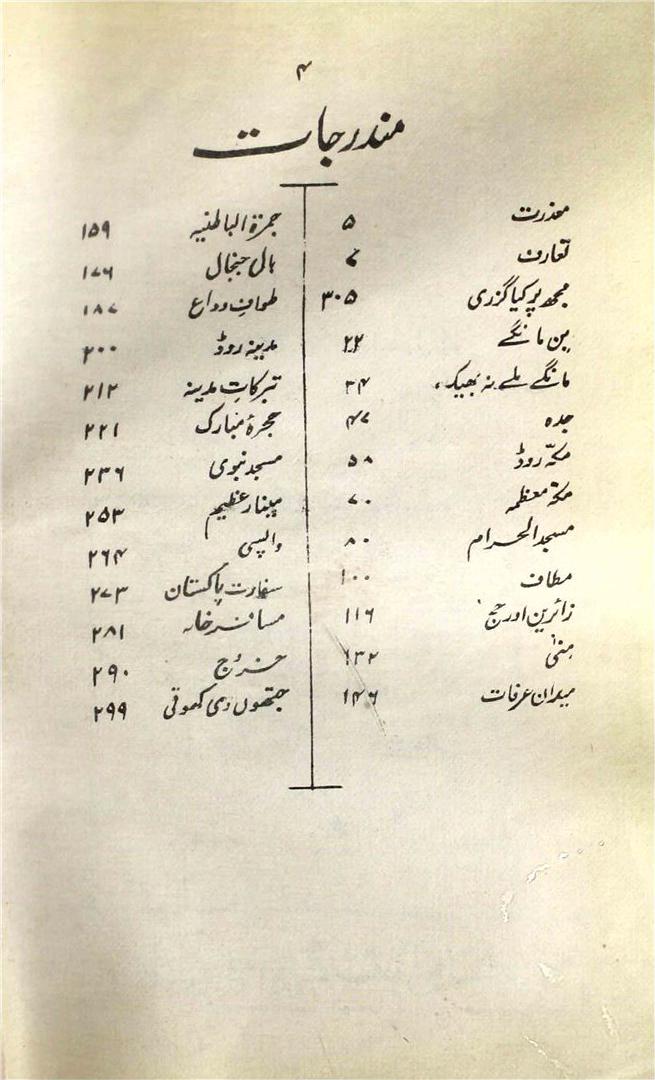 ۴
مندرجات
معذرت ۵
تعارف ۷
مجھ پر کیا گزری ۳۰۵
بِن مانگے ۲۲
مانگے ملے نہ بھیک، ۳۴
جدہ ۴۷
مکہ روڈ ۵۸
مکہ معظمہ ۷۰
مسجد الحرام ۸۰
مطاف ۱۰۰
زائرین اور حج ۱۱۶
منیٰ ۱۳۲
میدان عرفات ۱۴۶
جمرۃ الباطنیہ ۱۵۹
بالی جنجال ۱۷۶
طوافِ وداع ۱۸۷
مدینہ روڈ ۲۰۰
تبرکاتِ مدینہ ۲۱۲
حجرۂ مبارک ۲۲۱
مسجد نبوی ۲۳۶
مینار عظیم ۲۵۳
واپسی ۲۶۴
سفارت پاکستان ۲۷۳
مسافر خانہ ۲۸۱
خروج ۲۹۰
جتھوں دی کھوتی ۲۹۹